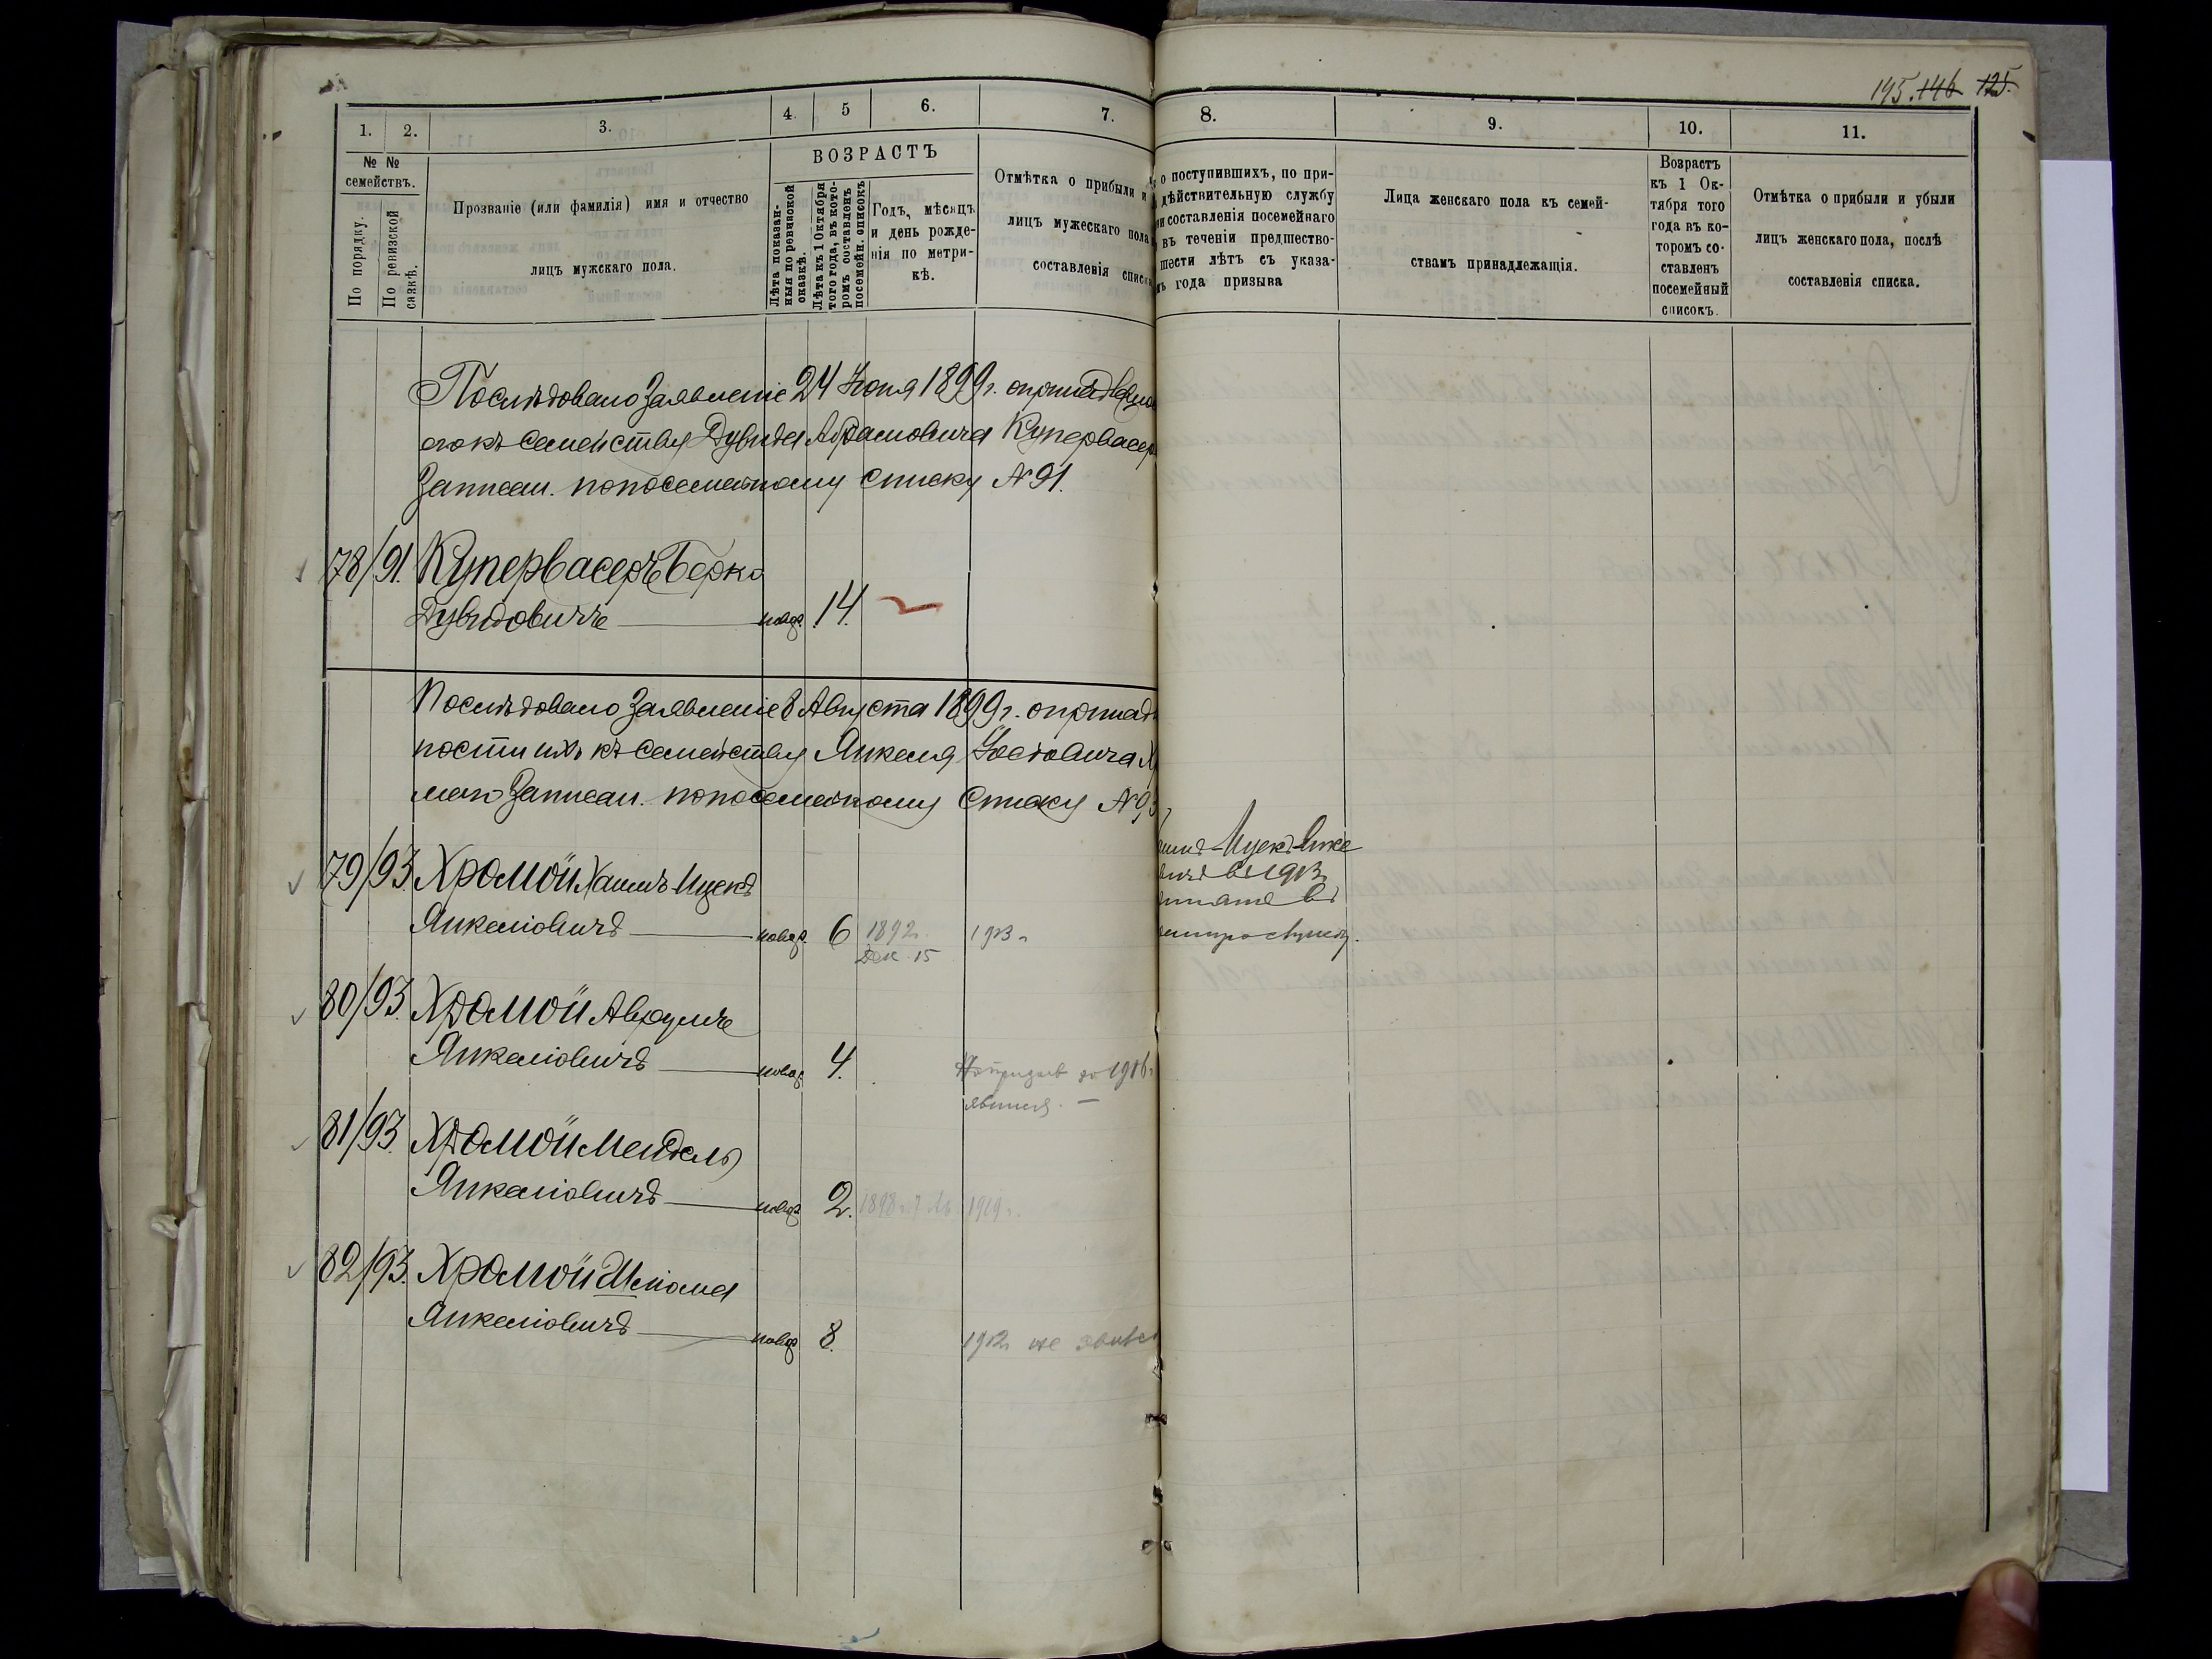 195. 146 125.
1. 2. 3. 4. 5 6. 7. 8. 9. 10. 11.
№ №
семействъ.
По порядку.
По ревизской сказкѣ.
Прозваніе (или фамилія) имя и отчество
лицъ мужскаго пола.
ВОЗРАСТЪ
Лѣта показан-
ныя по ревизской
сказкѣ.
Лѣта къ 1 Октября
того года, въ кото-
ромъ составленъ
посемейн. списокъ
Годъ, мѣсяцъ
и день рожде-
нія по метри-
кѣ.
Отмѣтка о прибыли и
лицъ мужескаго пола
составленія списка
о поступившихъ, по при-
дѣйствительную службу
и составленія посемейнаго
въ теченіи предшество-
шести лѣтъ съ указа-
года призыва
Лица женскаго пола къ семей-
ствамъ принадлежащія.
Возрастъ
къ 1 Ок-
тября того
года въ ко-
торомъ со-
ставленъ
посемейный
списокъ.
Отмѣтка о прибыли и убыли
лицъ женскаго пола, послѣ
составленія списка.
Послѣдовало Заявленіе 24 Іюня 1899 г. о принадлежно
его къ семейству Дувида Абрамовича Купервасер
Записан. по посемейному списку № 91.
78/91. Купервасеръ Берко
Дувидовичъ новор. 14.
Послѣдовало Заявленіе 8 Августа 1899 г. о принад
ности ихъ къ семейству Янкеля Іосіовича Х
мого Записан. по посемейному Списку № 93
79/93. Хромой Хаимъ Ицекъ
Янкеліовичъ новор. 6 1892 1913 г.
Дек. 15
Ицекъ Янке
вичъ въ 1913
80/93. Хромой Аврумъ
Янкеліовичъ новор 4. призыв 1916 г
явился. —
81/93. Хромой Мендель
Янкеліовичъ новор 2. 1898 г. 1919 г.
82/93. Хромой Шліома
Янкеліовичъ новор 8. 1912 не явил